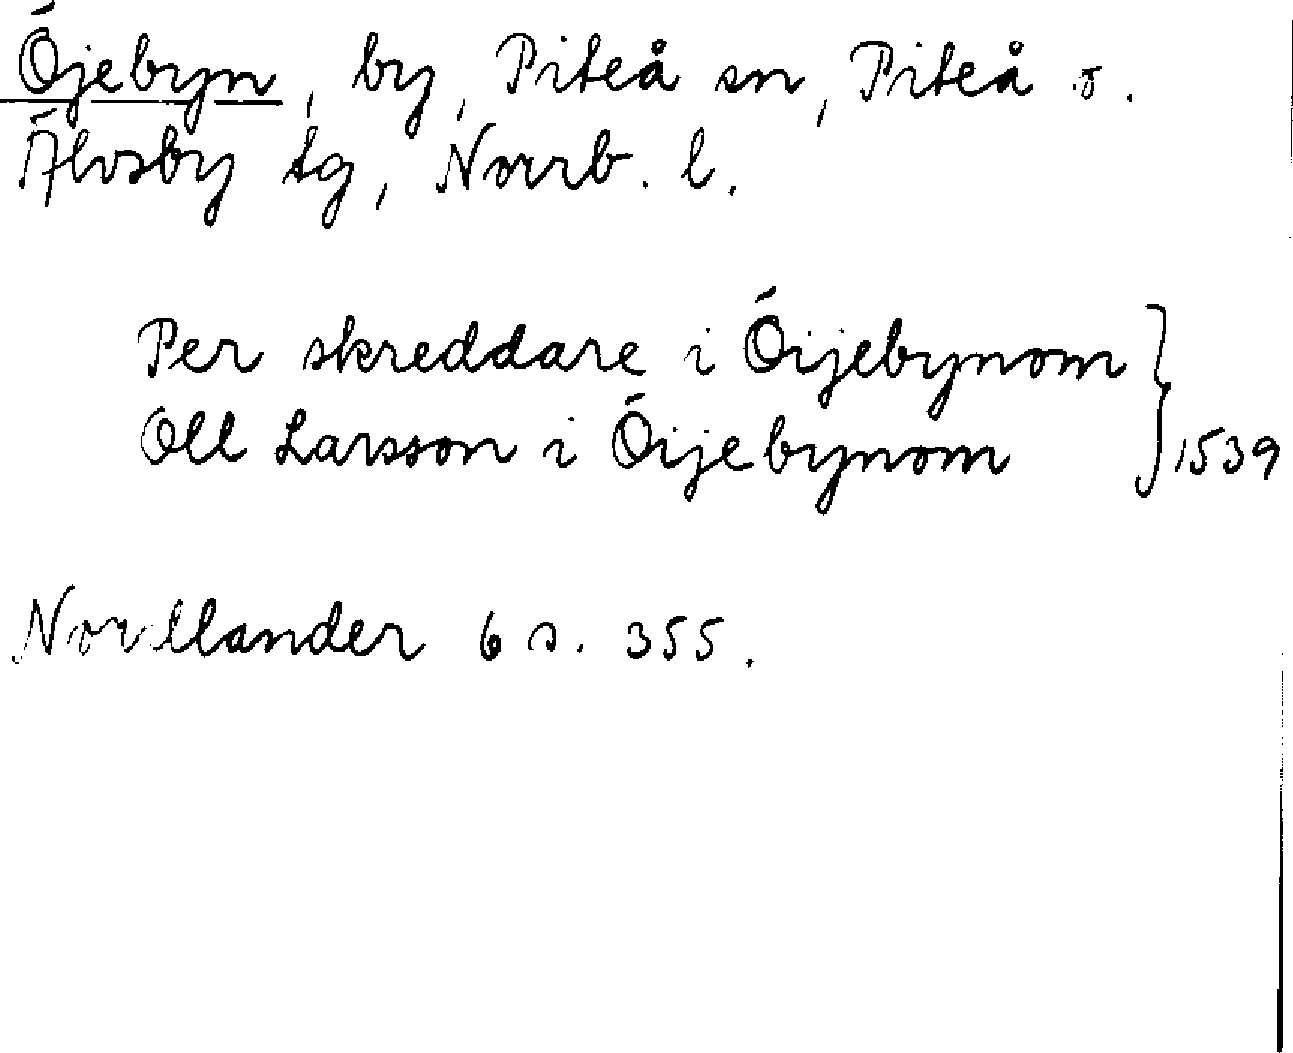 Öjebyn, by, Piteå sn, Piteå o.
Älvsby tg, Norrb. l.
Per skreddare i Öijebynom
Oll Larsson i Öijebynom } 1539
Nordlander 6 s. 355.